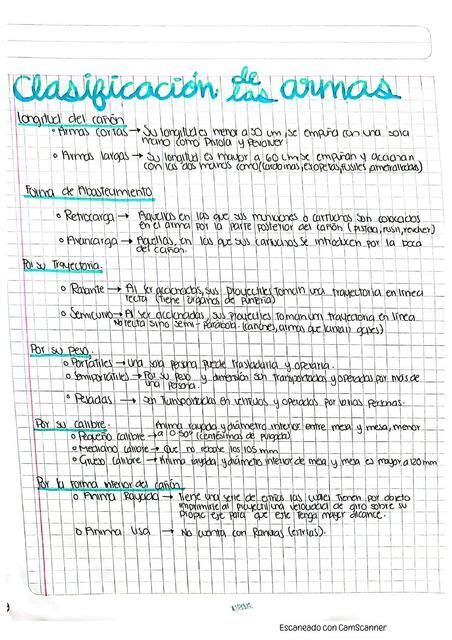 Clasificación de las armas
longitud del cañón
• Armas cortas → Su longitud es menor a 30 cm, se empuña con una sola
mano como Pistola y Revolver
• Armas largas → Su longitud es mayor a 60 cm se empuñan y accionan
con las dos manos como (carabinas, escopetas, fusiles ametralladoras)
Forma de Abastecimiento
• Retrocarga → Aquellas en las que sus municiones o cartuchos son colocados
en el arma por la parte posterior del cañón (pistola, fusil,
• Avancarga → Aquellas, en las que sus cartuchos se introducen por la boca
del cañón.
Por su Trayectoria.
• Rasante → Al ser accionadas, sus proyectiles toman una trayectoria en línea
recta (tiene órganos de puntería)
• Semicurvo → Al ser accionadas, sus proyectiles toman una trayectoria en línea
No recta sino semi-parabola. (cañones, armas que lanzan gases)
Por su peso.
• Portátiles → Una sola persona puede trasladarla y operarla.
• Semiportátiles → Por su peso y dimensión son transportadas y operadas por más de
una persona.
• Pesadas → son Transportadas en vehículos y operadas por varias personas.
Por su calibre.
• Pequeño calibre → Anima rayada y diámetro interior entre mesa y mesa, menor
a 0.50" (centésimas de pulgada)
• Mediano calibre → Que no rebase los 105 mm
• Grueso calibre → Anima rayada, y diámetro interior de mesa y mesa es mayor a 120 mm
Por la forma interior del cañón.
• Anima Rayada → Tiene una serie de estrías las cuales tienen por objeto
imprimirle al proyectil una velocidad de giro sobre su
propio eje para que este tenga mayor alcance.
• Anima lisa → No cuenta con Ranuras (estrías).
Escaneado con CamScanner